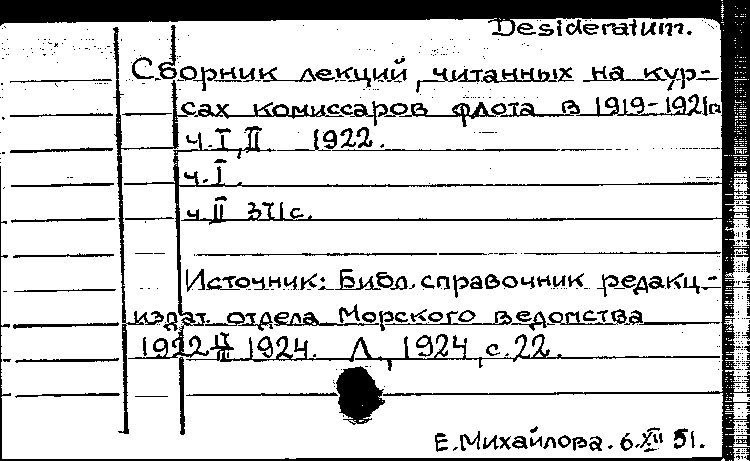 Desideratum.
Сборник лекций, читанных на кур-
сах комиссаров флота в 1919-1921гг
ч. I, II. 1922.
ч. I.
ч. II 371 с.
Источник: Библ. справочник редакц.-
издат. отдела Морского ведомства
1922 1924. Л., 1924, с. 22.
Е. Михайлова. 6.XII 51.